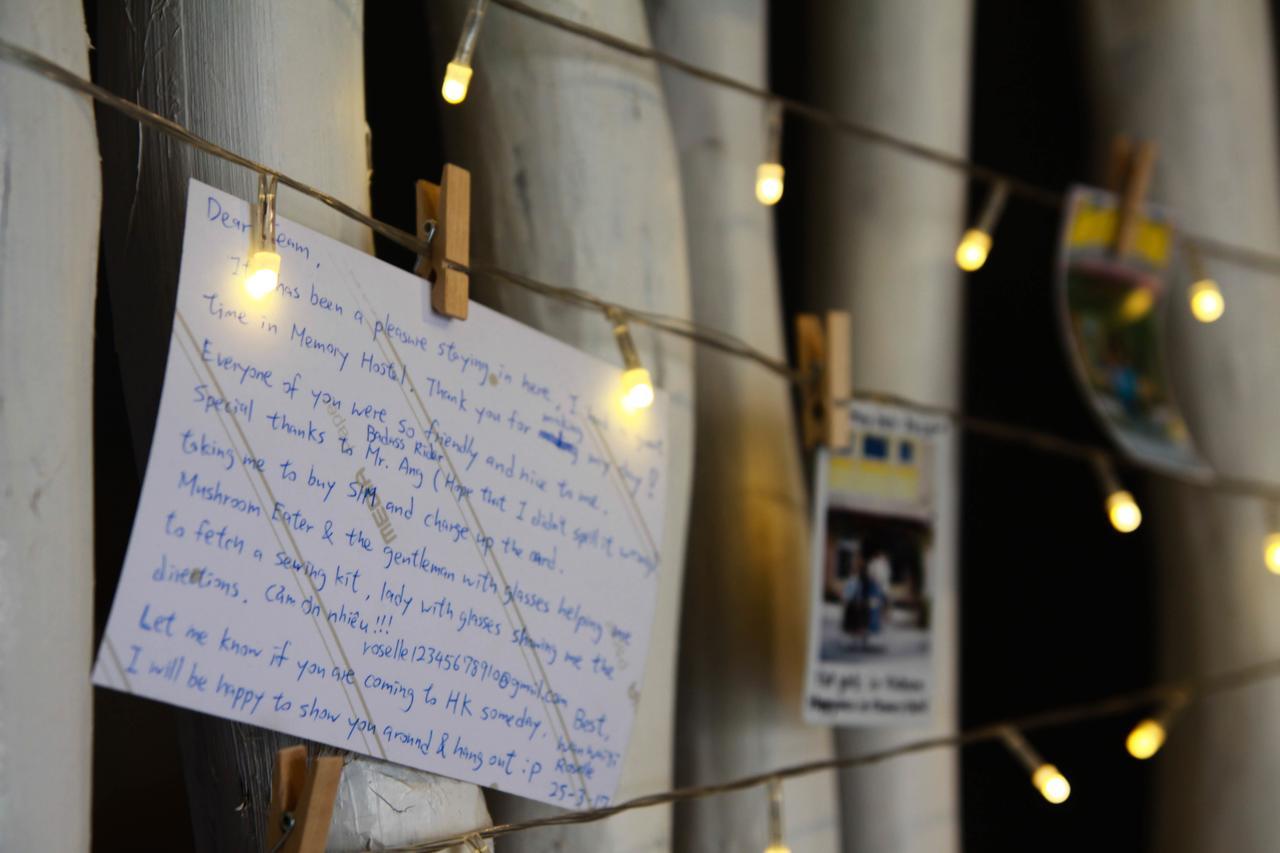 Dear Team,
It has been a pleasure staying in here, I
time in Memory Hostel. Thank you for making my day!
Everyone of you were so friendly and nice to me.
Badass Rider
Special thanks to Mr. Ang (Hope that I didn't spell it wrong)
taking me to buy SIM and charge up the card.
Mushroom Eater & the gentleman with glasses helping me
to fetch a sewing kit, lady with glasses showing me the
directions. Cảm ơn nhiêu!!!
roselle12345678910@gmail.com
Let me know if you are coming to HK someday, Best,
I will be happy to show you around & hang out :p Roselle
25-3-17